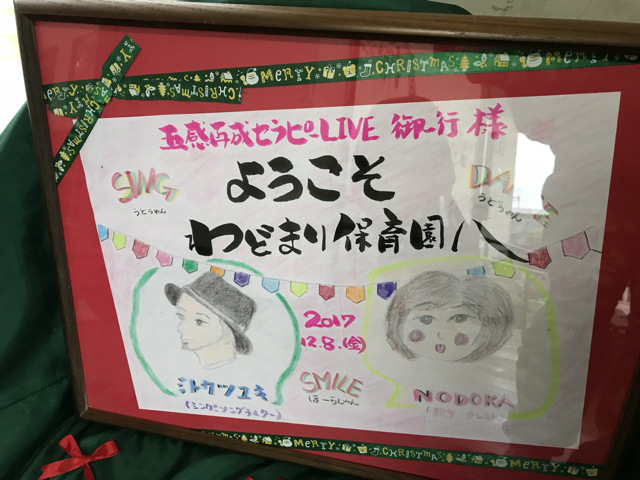 MERRY CHRISTMAS MERRY CHRISTMAS
五感再成セラピーLIVE 御一行 様
SING
うとうやん
ようこそ
わどまり保育園へ
2017
12.8.(金)
ミトカツユキ
(シンガーソングライター)
SMILE
ほーらしゃん
NODOKA
CHRISTMAS
MERRY